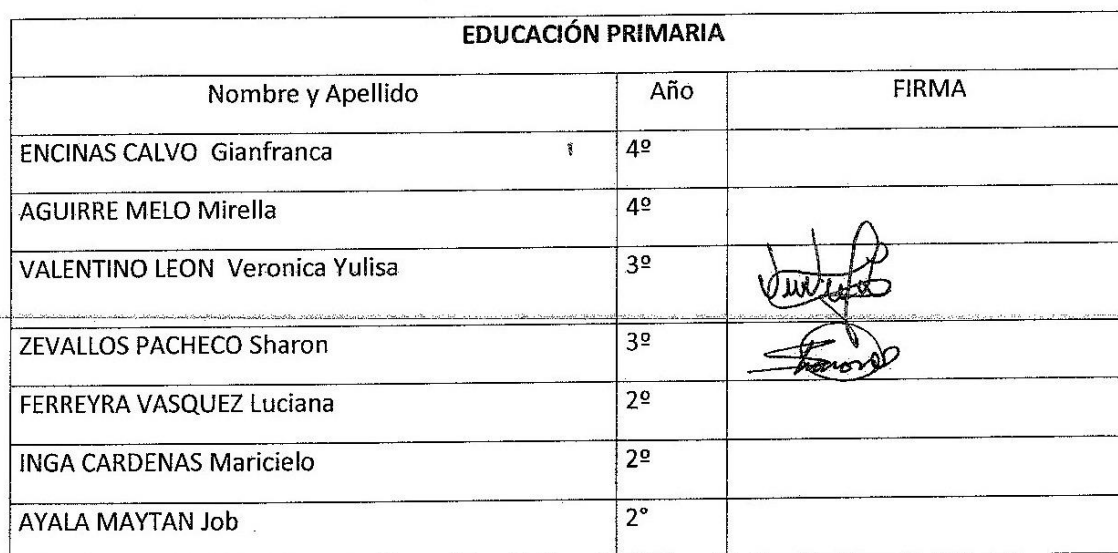 EDUCACIÓN PRIMARIA
Nombre y Apellido Año FIRMA
ENCINAS CALVO Gianfranca 4º
AGUIRRE MELO Mirella 4º
VALENTINO LEON Veronica Yulisa 3º
ZEVALLOS PACHECO Sharon 3º
FERREYRA VASQUEZ Luciana 2º
INGA CARDENAS Maricielo 2º
AYALA MAYTAN Job 2°